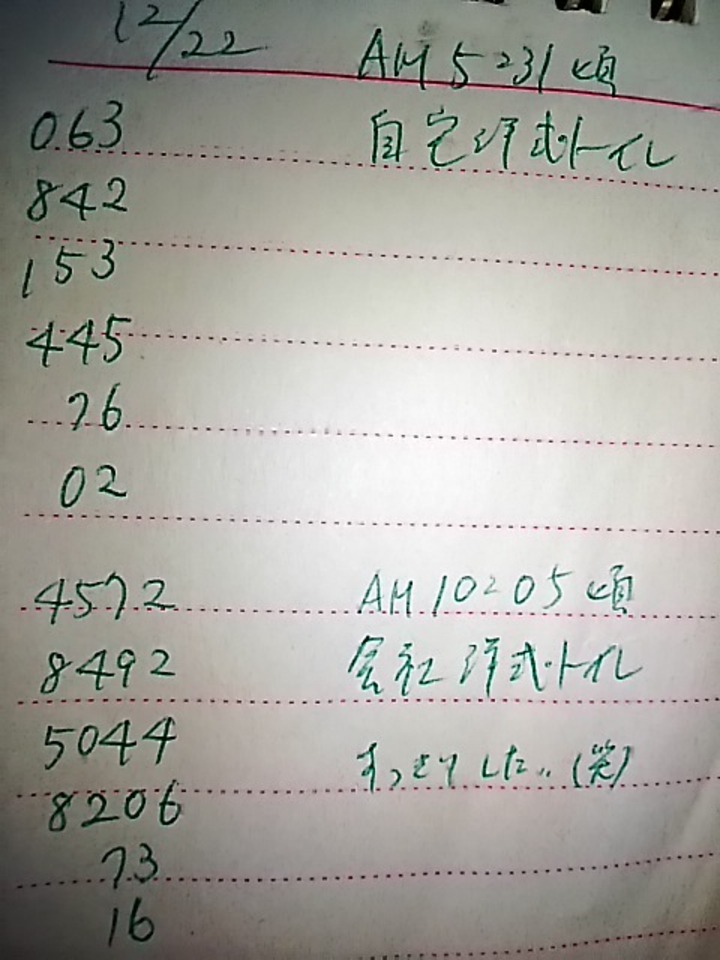 12/22
AM 5:31 頃
063
自宅洋式トイレ
842
153
445
76
02
4572
AM 10:05 頃
8492
会社洋式トイレ
5044
すっきりした。(笑)
8206
73
16